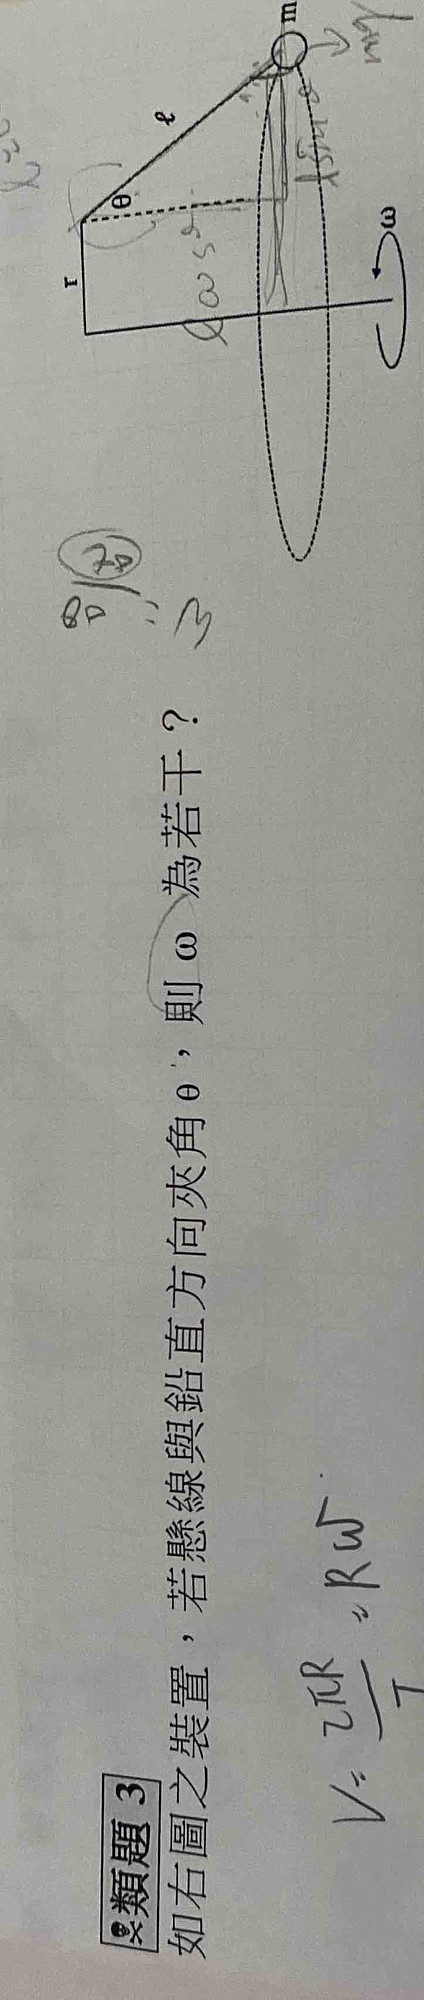 類題 3
如右圖之裝置，若懸線與鉛直方向夾角θ，則 ω 為若干？
V = 2πR/T = Rω
r
θ
ℓ
m
mg
ω